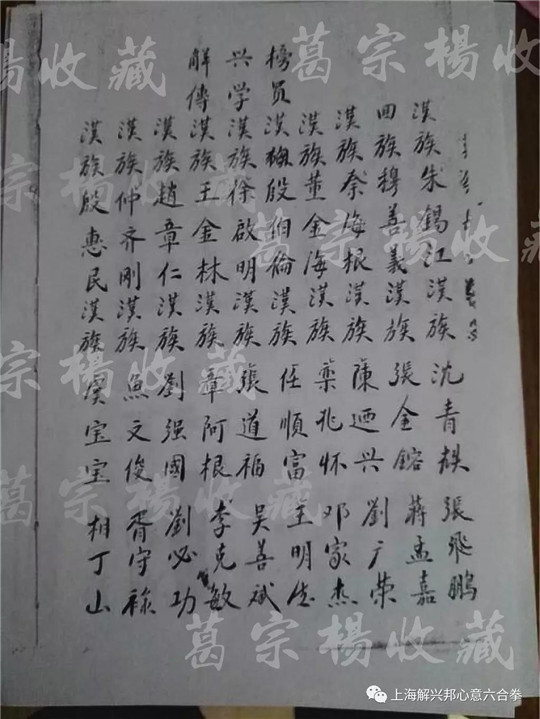 解兴榜
傳学员
漢族朱錫江漢族沈青棋張飛鹏
回族穆善義漢族張金鎔蒋孟嘉
漢族海根漢族陳迺兴劉广荣
漢族董金海漢族兆怀邓家杰
漢殷伯倫漢族任順富王明
漢族徐啟明漢族張道福吴善斌
漢族王金林漢族章阿根李克敏
漢族趙章仁漢族劉强國劉必功
漢族仲齐刚漢族魚文俊胥守禄
漢族殷惠民漢族虞宝宝相丁山
葛宗楊收藏
葛宗楊收藏
葛宗楊收藏
葛宗楊收藏
葛宗楊收藏
上海解兴邦心意六合拳